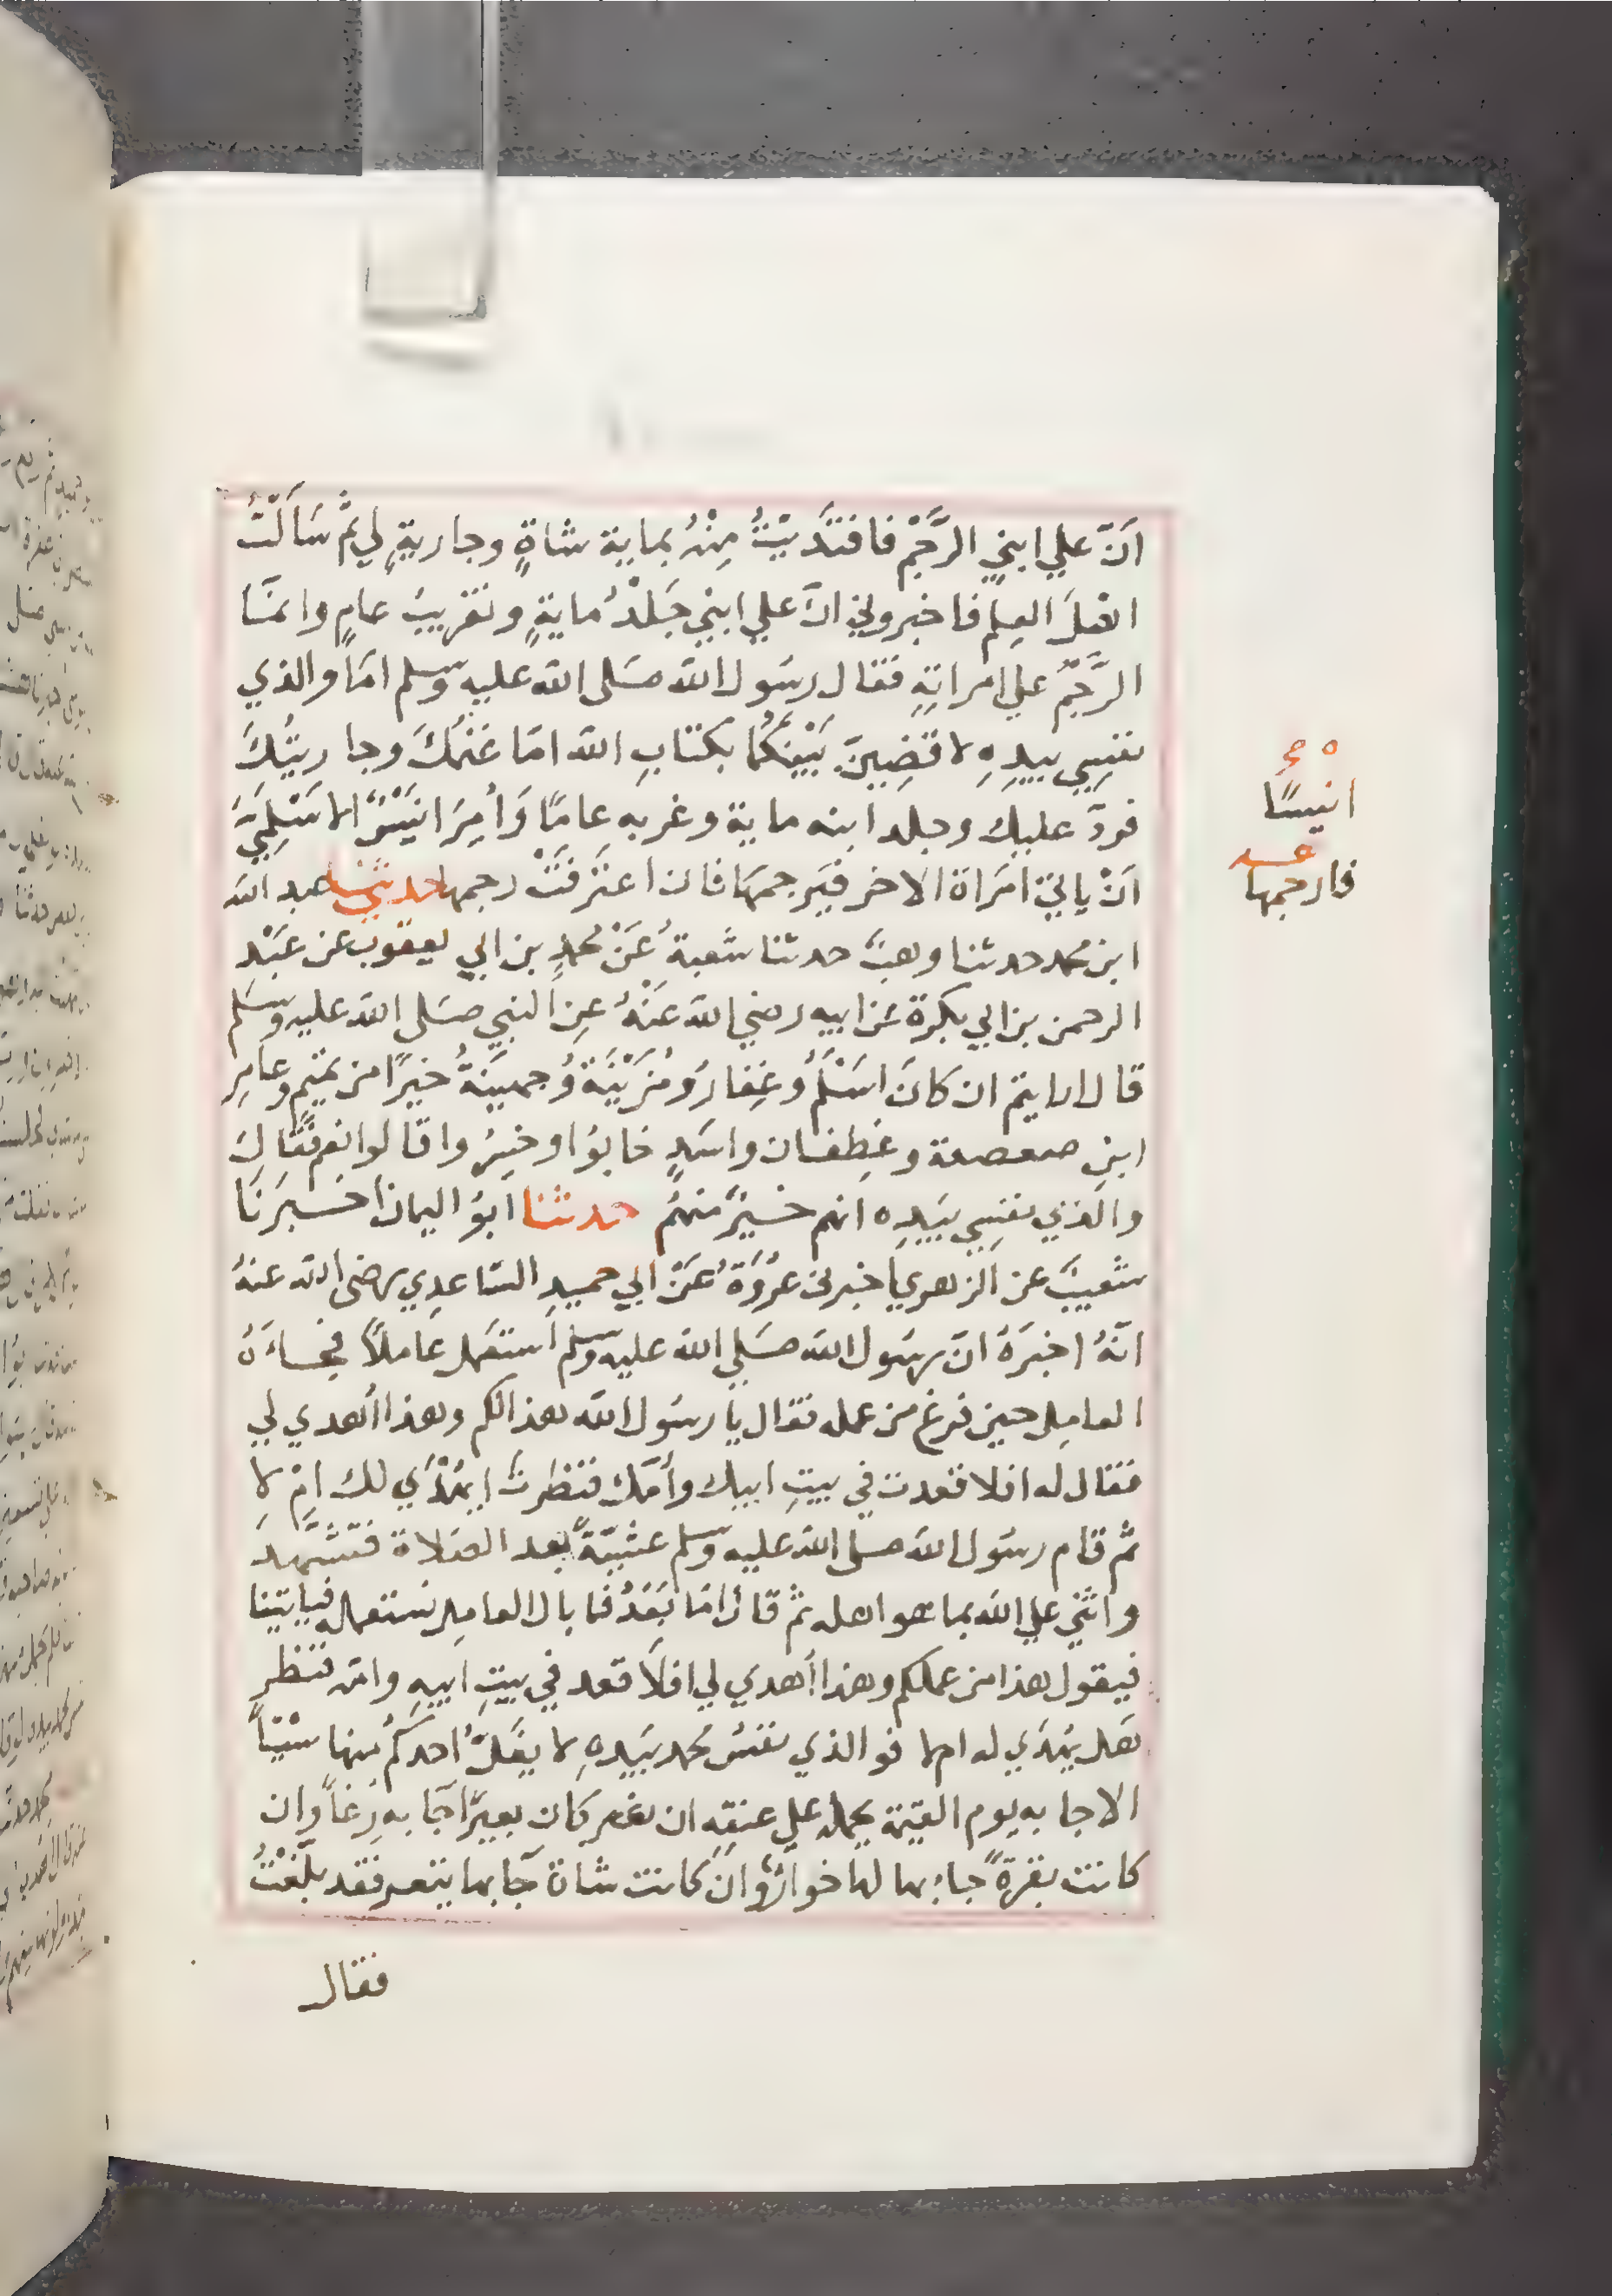 اَنَّ علي ابني الرَّجْمَ فافتدَيْتُ مِنْهُ بماية شاةٍ وجاريةٍ لي ثمَّ سَاَلْتُ
اهْلَ العِلم فاخبروني انّ علي ابني جَلدُ مايةٍ وتغريبُ عامٍ وانمَّا
الرَّجْمُ علي امراتِهِ فقال رسَول الله صَلى الله عليه وسلم امَا والذي
نفسِي بيدِهِ لاقضِيَنَّ بَيْنكُما بكتابِ الله امَا غنمُكَ وجاريتُكَ
فردّ عليك وجلد ابنه ماية وغربه عامًا وَاُمِرَ انَيْسٌ الاسْلمِيّ
انْ ياتيَ امرَاة الاخر فيَرجمهَا فان اعترَفَتْ رجمها حدثني عبد الله
ابن محمد حدثنا وهبٌ حدثنا شعبةُ عَنْ محمدِ بن ابي يعقوب عن عَبْد
الرحمن بن ابي بكرة عَن ابيه رضي الله عَنْهُ عن النبي صَلى الله عليه وسَلم
قال ارايتم ان كانَ اسْلَمُ وغِفارُ ومُزَيْنَةُ وجهينَةُ خيرًا من تميم وعامِر
ابنِ صعصعة وغِطفان واسَدٍ خابوُا وخسِرُوا قالوا نعم فقالَ
والذي نفسِي بيَدِه انهم خيرٌ منهُم حدثنا ابوُ اليمان اخبرَنَا
شعيبٌ عن الزهري اخبرني عرْوَةُ عَنْ ابي حميدِ السّاعدِي رضى الله عنهُ
انّهُ اخبرَهُ انّ رسُول الله صَلي الله عليه وسلم استعمَل عاملاً فجاءَهُ
العامِل حين فرغ من عمله فقال يا رسُول الله هذا لكم وهذا اُهدي لي
فقال له افلا قعدت في بيتِ ابيك وأمّك فنظرت ايهْدَي لك امْ لا
ثمَّ قام رسُول الله صلى الله عليه وسلم عشِيّةً بعد الصَلاة فتشهّدَ
واثني علي الله بما هو اهله ثمَّ قال امَا بَعَدُ فما بال العامِل نستعمله فياتينا
فيقول هذا من عملكم وهذا اُهدي لي افلاَ قعد في بيتِ ابيهِ وامّه فنظر
هَل يُهدَي له ام لا فو الذي نفسُ محمد بيَدِهِ لا يَغلّ احدكُم منها شيْئاً
الا جا به يوم القيمة يحمله علي عنقِهِ ان كان بعيرًا جَا به رغاً وان
كانت بقرةً جاء بها لها خوارٌ وانَ كانت شاة جَا بها تيعر فقد بلّغْتُ
فقال
انيسًا
فارجمها